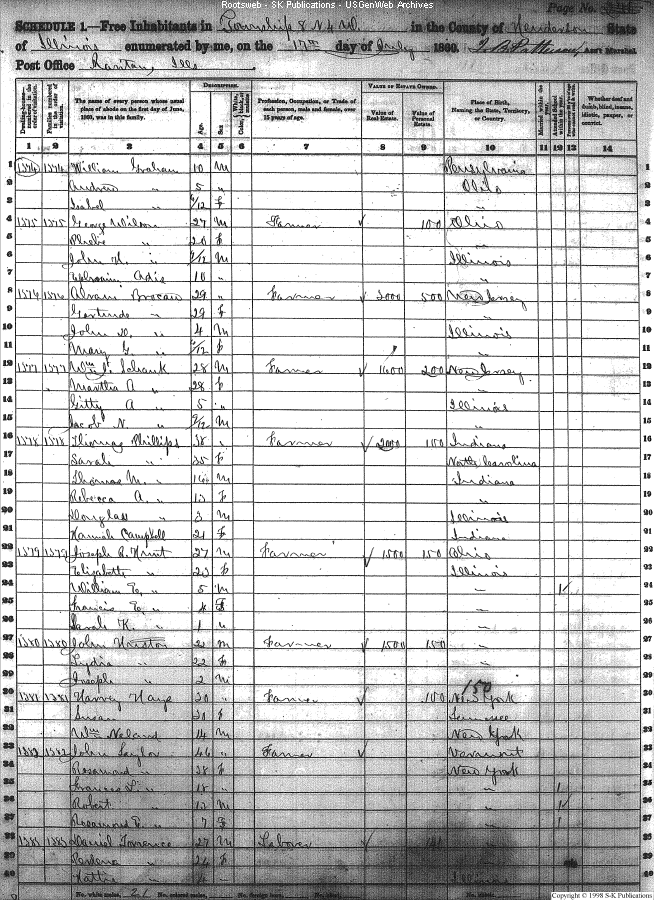 Rootsweb - SK Publications - USGenWeb Archives
Page No.
SCHEDULE 1.—Free Inhabitants in Township 8 N 4 W in the County of Henderson State
of Illinois enumerated by me, on the 17th day of July 1860. Ass't Marshal.
Post Office Raritan, Ills
Dwelling-houses—numbered in the order of visitation. Families numbered in the order of visitation. The name of every person whose usual place of abode on the first day of June, 1860, was in this family. DESCRIPTION. Age. Sex. Color, White, black, or mulatto. Profession, Occupation, or Trade of each person, male and female, over 15 years of age. VALUE OF ESTATE OWNED. Value of Real Estate. Value of Personal Estate. Place of Birth, Naming the State, Territory, or Country. Married within the year. Attended School within the year. Whether deaf and dumb, blind, insane, idiotic, pauper, or convict.
1 2 3 4 5 6 7 8 9 10 11 12 13 14
1 1374 1374 William Graham 10 m Pennsylvania 1
2 Andrew " 5 " Ohio 2
3 Isabel " /12 f " 3
4 1375 1375 George Wilson 27 m Farmer 100 Ohio 4
5 Phebe " 20 f " 5
6 John H. " /12 m Illinois 6
7 Ephraim Adis 10 " " 7
8 1376 1376 Abram Brocaw 29 " Farmer 2000 500 New Jersey 8
9 Gertrude " 29 f " 9
10 John D. " 4 m Illinois 10
11 Mary G. " /12 f " 11
12 1377 1377 Wm J. Schank 28 m Farmer 1600 200 New Jersey 12
13 Martha A " 28 f " 13
14 Gitty A " 5 " Illinois 14
15 Jacob N. " 9/12 m " 15
16 1378 1378 Thomas Phillips 38 " Farmer 2000 150 Indiana 16
17 Sarah " 35 f North Carolina 17
18 Thomas M. " 14 m Indiana 18
19 Rebecca A. " 12 f " 19
20 Douglass " 3 m Illinois 20
21 Hannah Campbell 21 f Indiana 21
22 1379 1379 Joseph R. Hunt 27 m Farmer 1500 150 Ohio 22
23 Elizabeth " 23 f Illinois 23
24 William E. " 5 m " 1 24
25 Francis E. " 4 f " 25
26 Sarah K. " 1 " " 26
27 1380 1380 John Huston m Farmer 1500 150 " 27
28 Lydia " 22 f " 28
29 Joseph " 2 m " 29
30 1381 1381 Harvey 30 " Farmer 100 150 New York 30
31 Susan " 30 f Tennessee 31
32 Wm Noland 14 m New York 32
33 1382 1382 John Saylor 46 " Farmer Vermont 33
34 Rosamond " 38 f New York 34
35 Frances L. " 18 " " 1 35
36 Robert " 12 m " 1 36
37 Rosamond E. " 7 f " 1 37
38 1383 1383 Daniel Torrence 27 m Laborer " 38
39 " 24 f " 39
40 Hattie " " Illinois 40
No. white males, No. colored males, No. foreign born, No. blind,
Copyright © 1998 S-K Publications